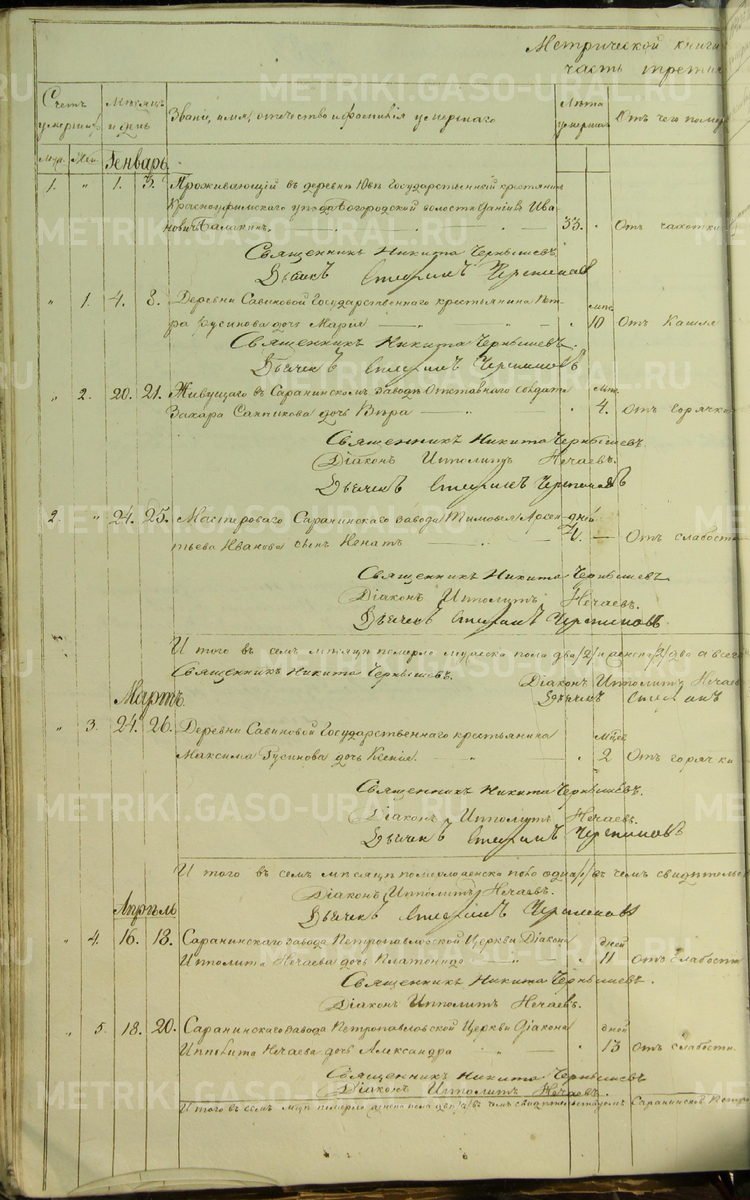 Метрической книги
часть третия
Счетъ умершихъ
Мѣсяцъ и день
Званіе, имя, отечество и фамилія умершаго
Лѣта умершаго
Отъ чего
Муж. Жен.
Генварь
1. " 1. 3. Проживающій въ деревни Государственной крестьянинъ
Красноуфимскаго уѣзда Богородской волости Ива-
новичъ 33. " Отъ чахотки
Священникъ Никита Чернышевъ.
Дьячекъ
" 1. 4. 8. Деревни Савиновой Государственнаго крестьянина Пет-
ра Гусинова дочь Марія 10 Отъ Кашля
Священникъ Никита Чернышевъ.
Дьячекъ
" 2. 20. 21. Живущаго въ Саранинскомъ заводѣ Отставнаго солдата
Захара дочь Вѣра " 4. Отъ горячки
Священникъ Никита Чернышевъ
Діаконъ Ипполитъ Нечаевъ.
Дьячекъ
2. " 24. 25. Мастероваго Саранинскаго завода Тимофея Арсен- дней
тьева Иванова сынъ Игнатъ Отъ слабости
Священникъ Никита Чернышевъ
Діаконъ Ипполитъ Нечаевъ.
Дьячекъ
И того въ семъ мѣсяцѣ померло мужеска пола два /2/ и женска /2/ два а всего
Священникъ Никита Чернышевъ.
Діаконъ Ипполитъ Нечаевъ
Дьячекъ
Мартъ.
" 3. 24. 26. Деревни Савиновой Государственнаго крестьянина
Максима Гусинова дочь Ксенія. " 2 Отъ горячки
Священникъ Никита Чернышевъ.
Діаконъ Ипполитъ Нечаевъ.
Дьячекъ
И того въ семъ мѣсяцѣ померло женска пола одна /1/ въ чемъ свидѣтельст
Діаконъ Ипполитъ Нечаевъ.
Дьячекъ
Апрѣль
" 4. 16. 18. Саранинскаго завода Петропавловской Церкви Діакона дней
Ипполита Нечаева дочь Платонида " 11 Отъ слабости
Священникъ Никита Чернышевъ.
Діаконъ Ипполитъ Нечаевъ.
" 5. 18. 20. Саранинскаго завода Петропавловской Церкви Діакона дней
Ипполита Нечаева дочь Александра " 13 Отъ слабости
Священникъ Никита Чернышевъ
Діаконъ Ипполитъ Нечаевъ.
И того въ семъ мцѣ померло женска пола двѣ /2/ въ чемъ свидѣтельствуемъ Саранинской Петро
METRIKI.GASO-URAL.RU